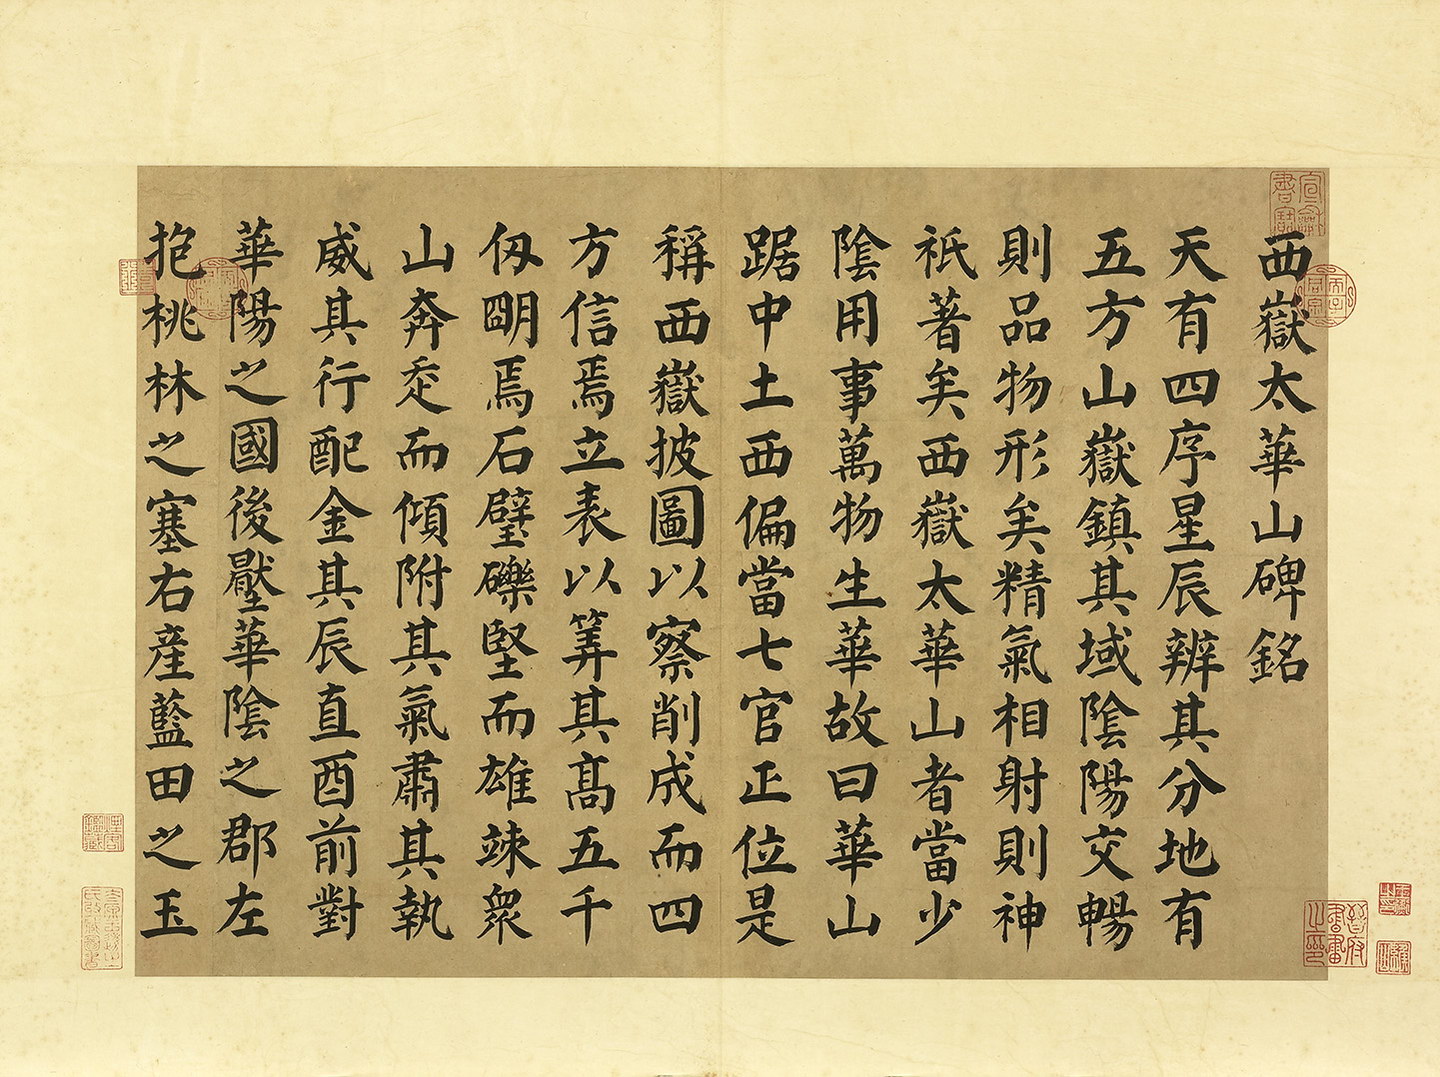 西嶽太華山碑銘
天有四序星辰辨其分地有
五方山嶽鎮其域陰陽交暢
則品物形矣精氣相射則神
祇著矣西嶽太華山者當少
陰用事萬物生華故曰華山
踞中土西偏當七官正位是
稱西嶽披圖以察削成而四
方信焉立表以筭其高五千
仭明焉石壁礫堅而雄竦衆
山奔走而傾附其氣肅其執
威其行配金其辰直酉前對
華陽之國後壓華陰之郡左
抱桃林之塞右産藍田之玉